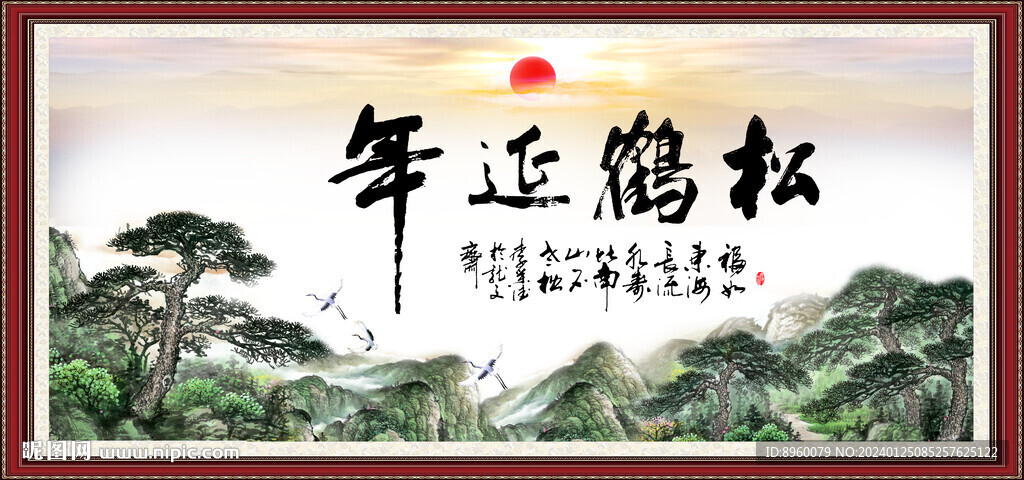 松鹤延年
福如
东海
長流
水寿
比南
山不
老松
李荣海
於龙文
斋
昵图网 www.nipic.com
ID:8960079 NO:20240125085257625122